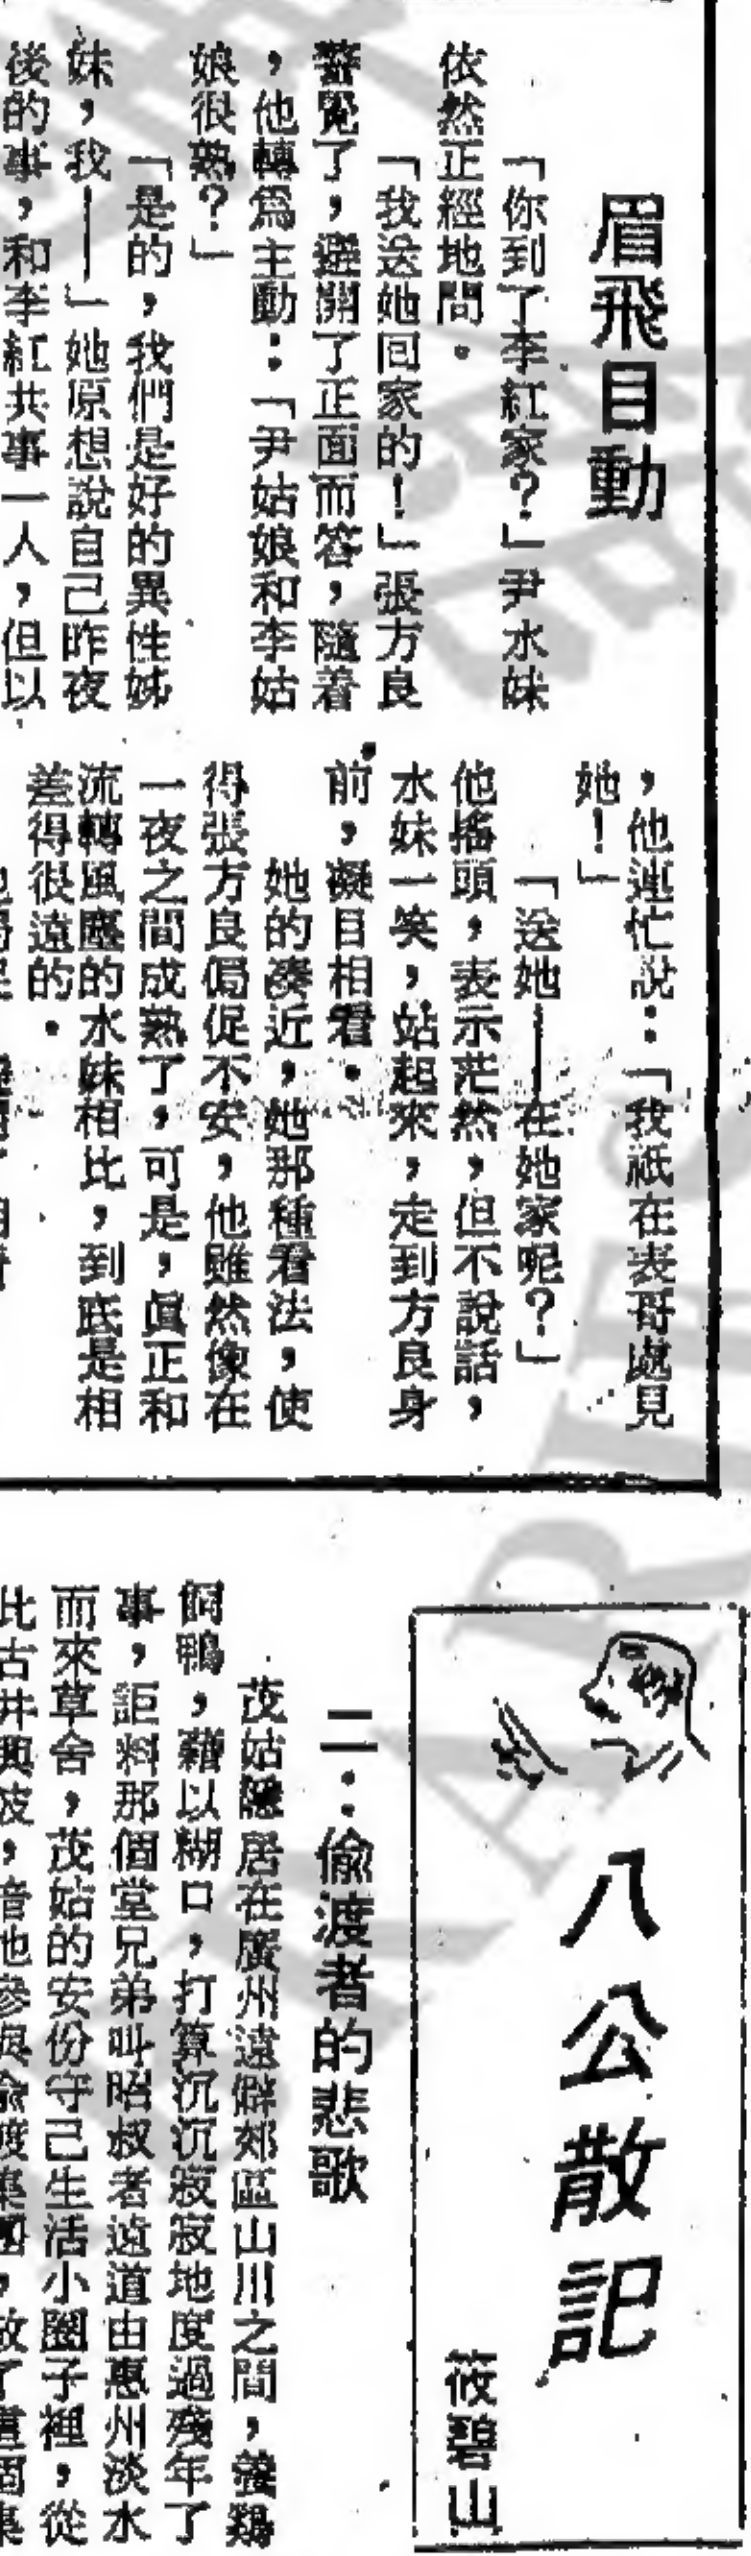 眉飛目動
「你到了李紅家？」尹水妹
依然正經地問。
「我送她回家的！」張方良
警覺了，避開了正面而答，隨着
，他轉爲主動：「尹姑娘和李姑
娘很熟？」
「是的，我們是好的異性姊
妹，我——」她原想說自己昨夜
後的事，和李紅共事一人，但以
，他連忙說：「我祗在表哥處見
她！」
「送她——在她家呢？」
他搖頭，表示茫然，但不說話，
水妹一笑，站起來，走到方良身
前，凝目相看。
她的凑近，她那種看法，使
得張方良侷促不安，他雖然像在
一夜之間成熟了，可是，眞正和
流轉風塵的水妹相比，到底是相
差得很遠的。
八公散記
莜碧山
二：偷渡者的悲歌
茂姑隱居在廣州遠僻郊區山川之間，養鷄
飼鴨，藉以糊口，打算沉沉寂寂地度過殘年了
事，詎料那個堂兄弟叫昭叔者遠道由惠州淡水
而來草舍，茂姑的安份守己生活小圈子裡，從
此古井興波，